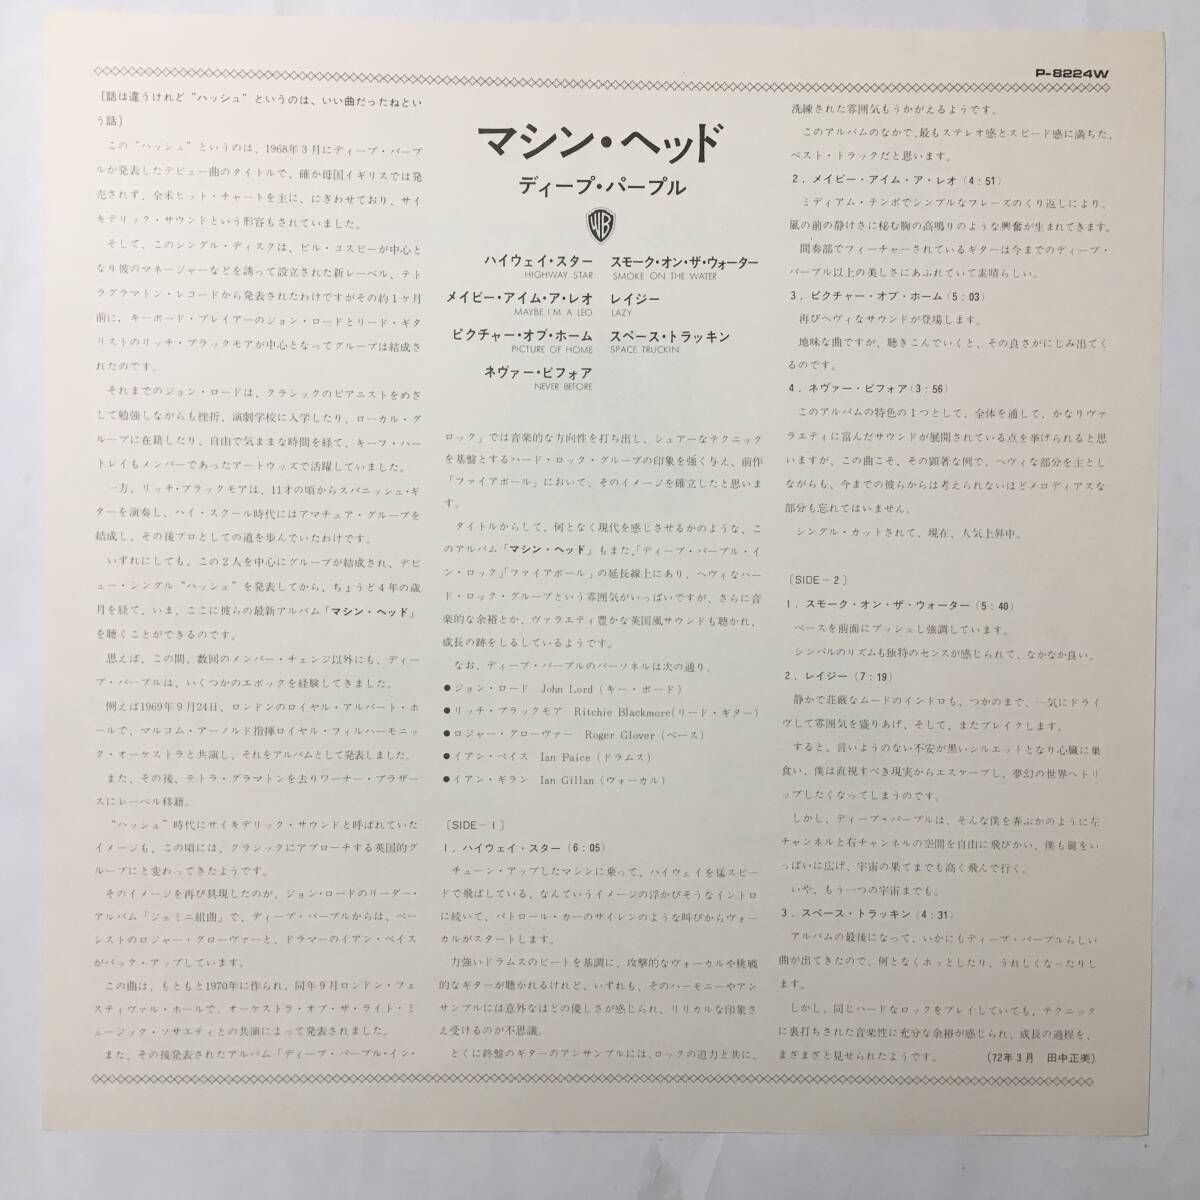 P-8224W
〔話は違うけれど“ハッシュ”というのは、いい曲だったねとい
う話〕
この“ハッシュ”というのは、1968年3月にディープ・パープ
ルが発表したデビュー曲のタイトルで、確か母国イギリスでは発
売されず、全米ヒット・チャートを主に、にぎわせており、サイ
キデリック・サウンドという形容もされていました。
そして、このシングル・ディスクは、ビル・コスビーが中心と
なり彼のマネージャーなどを誘って設立された新レーベル、テト
ラグラマトン・レコードから発表されたわけですがその約1ヶ月
前に、キーボード・プレイアーのジョン・ロードとリード・ギタ
リストのリッチ・ブラックモアが中心となってグループは結成さ
れたのです。
それまでのジョン・ロードは、クラシックのピアニストをめざ
して勉強しながらも挫折、演劇学校に入学したり、ローカル・グ
ループに在籍したり、自由で気ままな時間を経て、キーフ・ハー
トレイもメンバーであったアートウッズで活躍していました。
一方、リッチ・ブラックモアは、11才の頃からスパニッシュ・ギ
ターを演奏し、ハイ・スクール時代にはアマチュア・グループを
結成し、その後プロとしての道を歩んでいたわけです。
いずれにしても、この2人を中心にグループが結成され、デビ
ュー・シングル“ハッシュ”を発表してから、ちょうど4年の歳
月を経て、いま、ここに彼らの最新アルバム「マシン・ヘッド」
を聴くことができるのです。
思えば、この間、数回のメンバー・チェンジ以外にも、ディー
プ・パープルは、いくつかのエポックを経験してきました。
例えば1969年9月24日、ロンドンのロイヤル・アルバート・ホ
ールで、マルコム・アーノルド指揮ロイヤル・フィルハーモニッ
ク・オーケストラと共演し、それをアルバムとして発表しました。
また、その後、テトラ・グラマトンを去りワーナー・ブラザー
スにレーベル移籍。
“ハッシュ”時代にサイキデリック・サウンドと呼ばれていた
イメージも、この頃には、クラシックにアプローチする英国的グ
ループにと変わってきたようです。
そのイメージを再び具現したのが、ジョン・ロードのリーダー・
アルバム「ジェミニ組曲」で、ディープ・パープルからは、ベー
シストのロジャー・グローヴァーと、ドラマーのイアン・ペイス
がバック・アップしています。
この曲は、もともと1970年に作られ、同年9月ロンドン・フェ
スティヴァル・ホールで、オーケストラ・オブ・ザ・ライト・ミ
ュージック・ソサエティとの共演によって発表されました。
また、その後発表されたアルバム「ディープ・パープル・イン・
マシン・ヘッド
ディープ・パープル
WB
ハイウェイ・スター
HIGHWAY STAR
メイビー・アイム・ア・レオ
MAYBE I'M A LEO
ピクチャー・オブ・ホーム
PICTURE OF HOME
ネヴァー・ビフォア
NEVER BEFORE
スモーク・オン・ザ・ウォーター
SMOKE ON THE WATER
レイジー
LAZY
スペース・トラッキン
SPACE TRUCKIN
ロック」では音楽的な方向性を打ち出し、シュアーなテクニック
を基盤とするハード・ロック・グループの印象を強く与え、前作
「ファイアボール」において、そのイメージを確立したと思いま
す。
タイトルからして、何となく現代を感じさせるかのような、こ
のアルバム「マシン・ヘッド」もまた、「ディープ・パープル・イ
ン・ロック」「ファイアボール」の延長線上にあり、ヘヴィなハー
ド・ロック・グループという雰囲気がいっぱいですが、さらに音
楽的な余裕とか、ヴァラエティ豊かな英国風サウンドも聴かれ、
成長の跡をしるしているようです。
なお、ディープ・パープルのパーソネルは次の通り。
●ジョン・ロード John Lord (キー・ボード)
●リッチ・ブラックモア Ritchie Blackmore(リード・ギター)
●ロジャー・グローヴァー Roger Glover (ベース)
●イアン・ペイス Ian Paice (ドラムス)
●イアン・ギラン Ian Gillan (ヴォーカル)
〔SIDE-1〕
1. ハイウェイ・スター (6:05)
チューン・アップしたマシンに乗って、ハイウェイを猛スピー
ドで飛ばしている、なんていうイメージの浮かびそうなイントロ
に続いて、パトロール・カーのサイレンのような叫びからヴォー
カルがスタートします。
力強いドラムスのビートを基調に、攻撃的なヴォーカルや挑戦
的なギターが聴かれるけれど、いずれも、そのハーモニーやアン
サンブルには意外なほどの優しさが感じられ、リリカルな印象さ
え受けるのが不思議。
とくに終盤のギターのアンサンブルには、ロックの迫力と共に、
洗練された雰囲気もうかがえるようです。
このアルバムのなかで、最もステレオ感とスピード感に満ちた、
ベスト・トラックだと思います。
2. メイビー・アイム・ア・レオ (4:51)
ミディアム・テンポでシンプルなフレーズのくり返しにより、
嵐の前の静けさに秘む胸の高鳴りのような興奮が生まれてきます。
間奏部でフィーチャーされているギターは今までのディープ・
パープル以上の美しさにあふれていて素晴らしい。
3. ピクチャー・オブ・ホーム (5:03)
再びヘヴィなサウンドが登場します。
地味な曲ですが、聴きこんでいくと、その良さがにじみ出てく
るのです。
4. ネヴァー・ビフォア (3:56)
このアルバムの特色の1つとして、全体を通して、かなりヴァ
ラエティに富んだサウンドが展開されている点を挙げられると思
いますが、この曲こそ、その顕著な例で、ヘヴィな部分を主とし
ながらも、今までの彼らからは考えられないほどメロディアスな
部分も忘れてはいません。
シングル・カットされて、現在、人気上昇中。
〔SIDE-2〕
1. スモーク・オン・ザ・ウォーター (5:40)
ベースを前面にプッシュし強調しています。
シンバルのリズムも独特のセンスが感じられて、なかなか良い。
2. レイジー (7:19)
静かで荘厳なムードのイントロも、つかのまで、一気にドライ
ヴして雰囲気を盛りあげ、そして、またブレイクします。
すると、言いようのない不安が黒いシルエットとなり心臓に巣
食い、僕は直視すべき現実からエスケープし、夢幻の世界へトリ
ップしたくなってしまうのです。
しかし、ディープ・パープルは、そんな僕を弄ぶかのように左
チャンネルと右チャンネルの空間を自由に飛びかい、僕も翼をい
っぱいに広げ、宇宙の果てまでも高く飛んで行く。
いや、もう一つの宇宙までも。
3. スペース・トラッキン (4:31)
アルバムの最後になって、いかにもディープ・パープルらしい
曲が出てきたので、何となくホッとしたり、うれしくなったりし
ます。
しかし、同じハードなロックをプレイしていても、テクニック
に裏打ちされた音楽性に充分な余裕が感じられ、成長の過程を、
まざまざと見せられたようです。 (72年3月 田中正美)